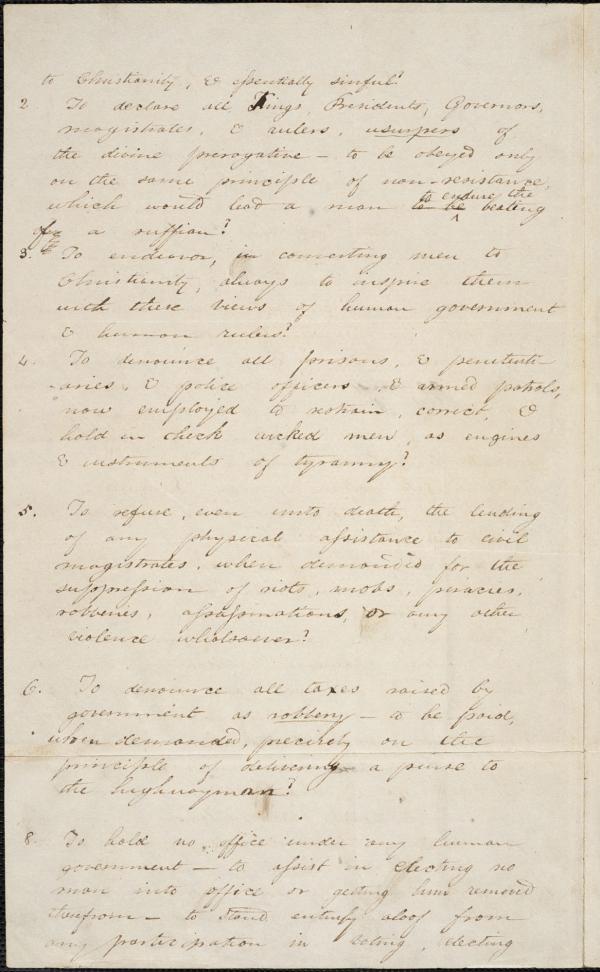 to Christianity, & essentially sinful?
2. To declare all Kings, Presidents, Governors,
magistrates, & rulers, usurpers of
the divine prerogative — to be obeyed only
on the same principle of non-resistance,
to endure the
which would lead a man to be beating
of a ruffian?
3. To endeavor, in converting men to
Christianity, always to inspire them
with these views of human government
& human rulers?
4. To denounce all prisons, & penitenti-
aries, & police officers, & armed patrols,
now employed to restrain, correct, &
hold in check wicked men, as engines
& instruments of tyranny?
5. To refuse, even unto death, the lending
of any physical assistance to civil
magistrates, when demanded for the
suppression of riots, mobs, piracies,
robberies, assassinations, or any other
violence whatsoever?
6. To denounce all taxes raised by
government as robbery — to be paid,
when demanded, precisely on the
principle of delivering a purse to
the highwayman?
8. To hold no office under any human
government — to assist in electing no
man into office or getting him removed
therefrom — to stand entirely aloof from
any participation in voting, electing